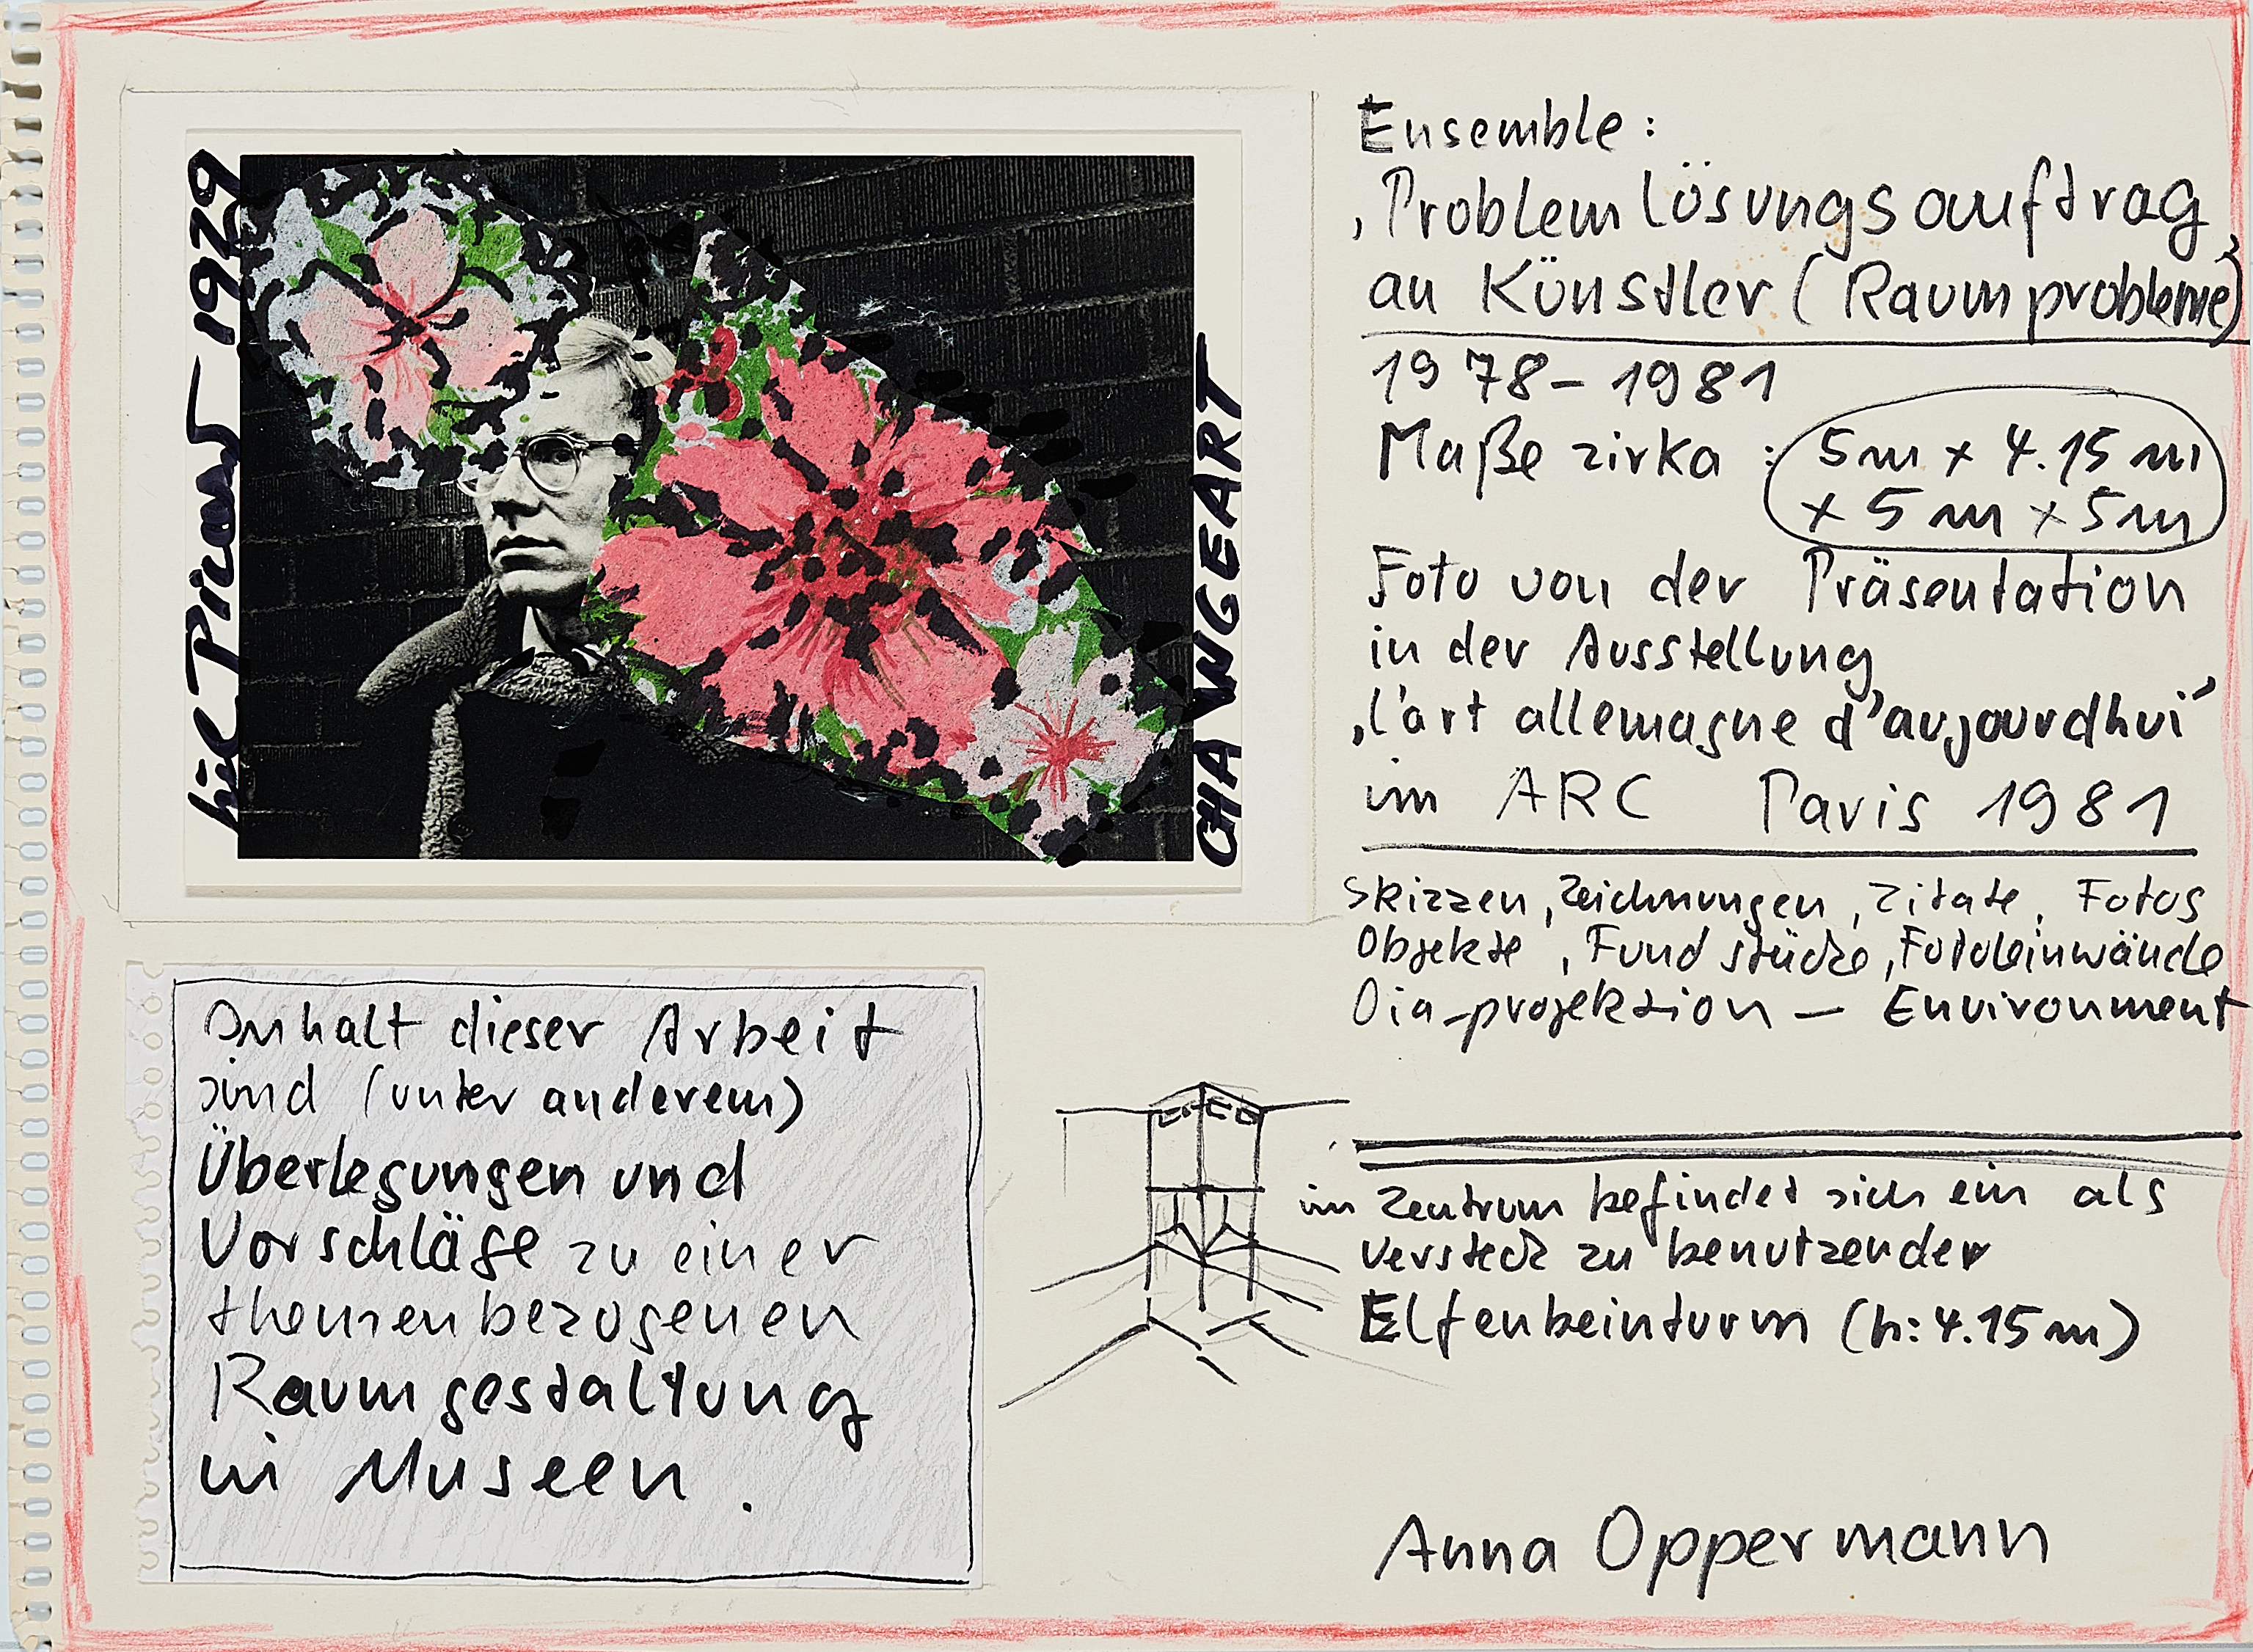 1979
CHANGEART
Ensemble:
‚Problemlösungsauftrag‚
an Künstler (Raumprobleme)
1978–1981
Maße zirka : 5m x 4.15 m
x 5 m x 5m
Foto von der Präsentation
in der Ausstellung
‚l'art allemagne d'aujourdhui´
im ARC Paris 1981
Skizzen, Zeichnungen, Zitate, Fotos
Objekte, Fundstücke, Fotoleinwände
Dia-projektion — Environment
im Zentrum befindet sich ein als
Versteck zu benutzender
Elfenbeinturm (h: 4.15 m)
Anna Oppermann
Inhalt dieser Arbeit
sind (unter anderem)
Überlegungen und
Vorschläge zu einer
themenbezogenen
Raumgestaltung
in Museen.